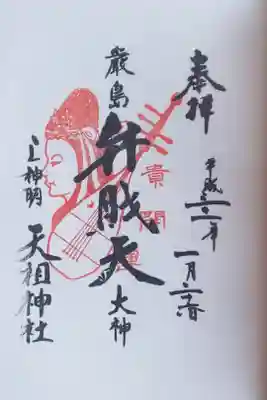 奉拝
平成三十一年
一月
厳島
弁財天
大神
貴開運
上神明
天祖神社